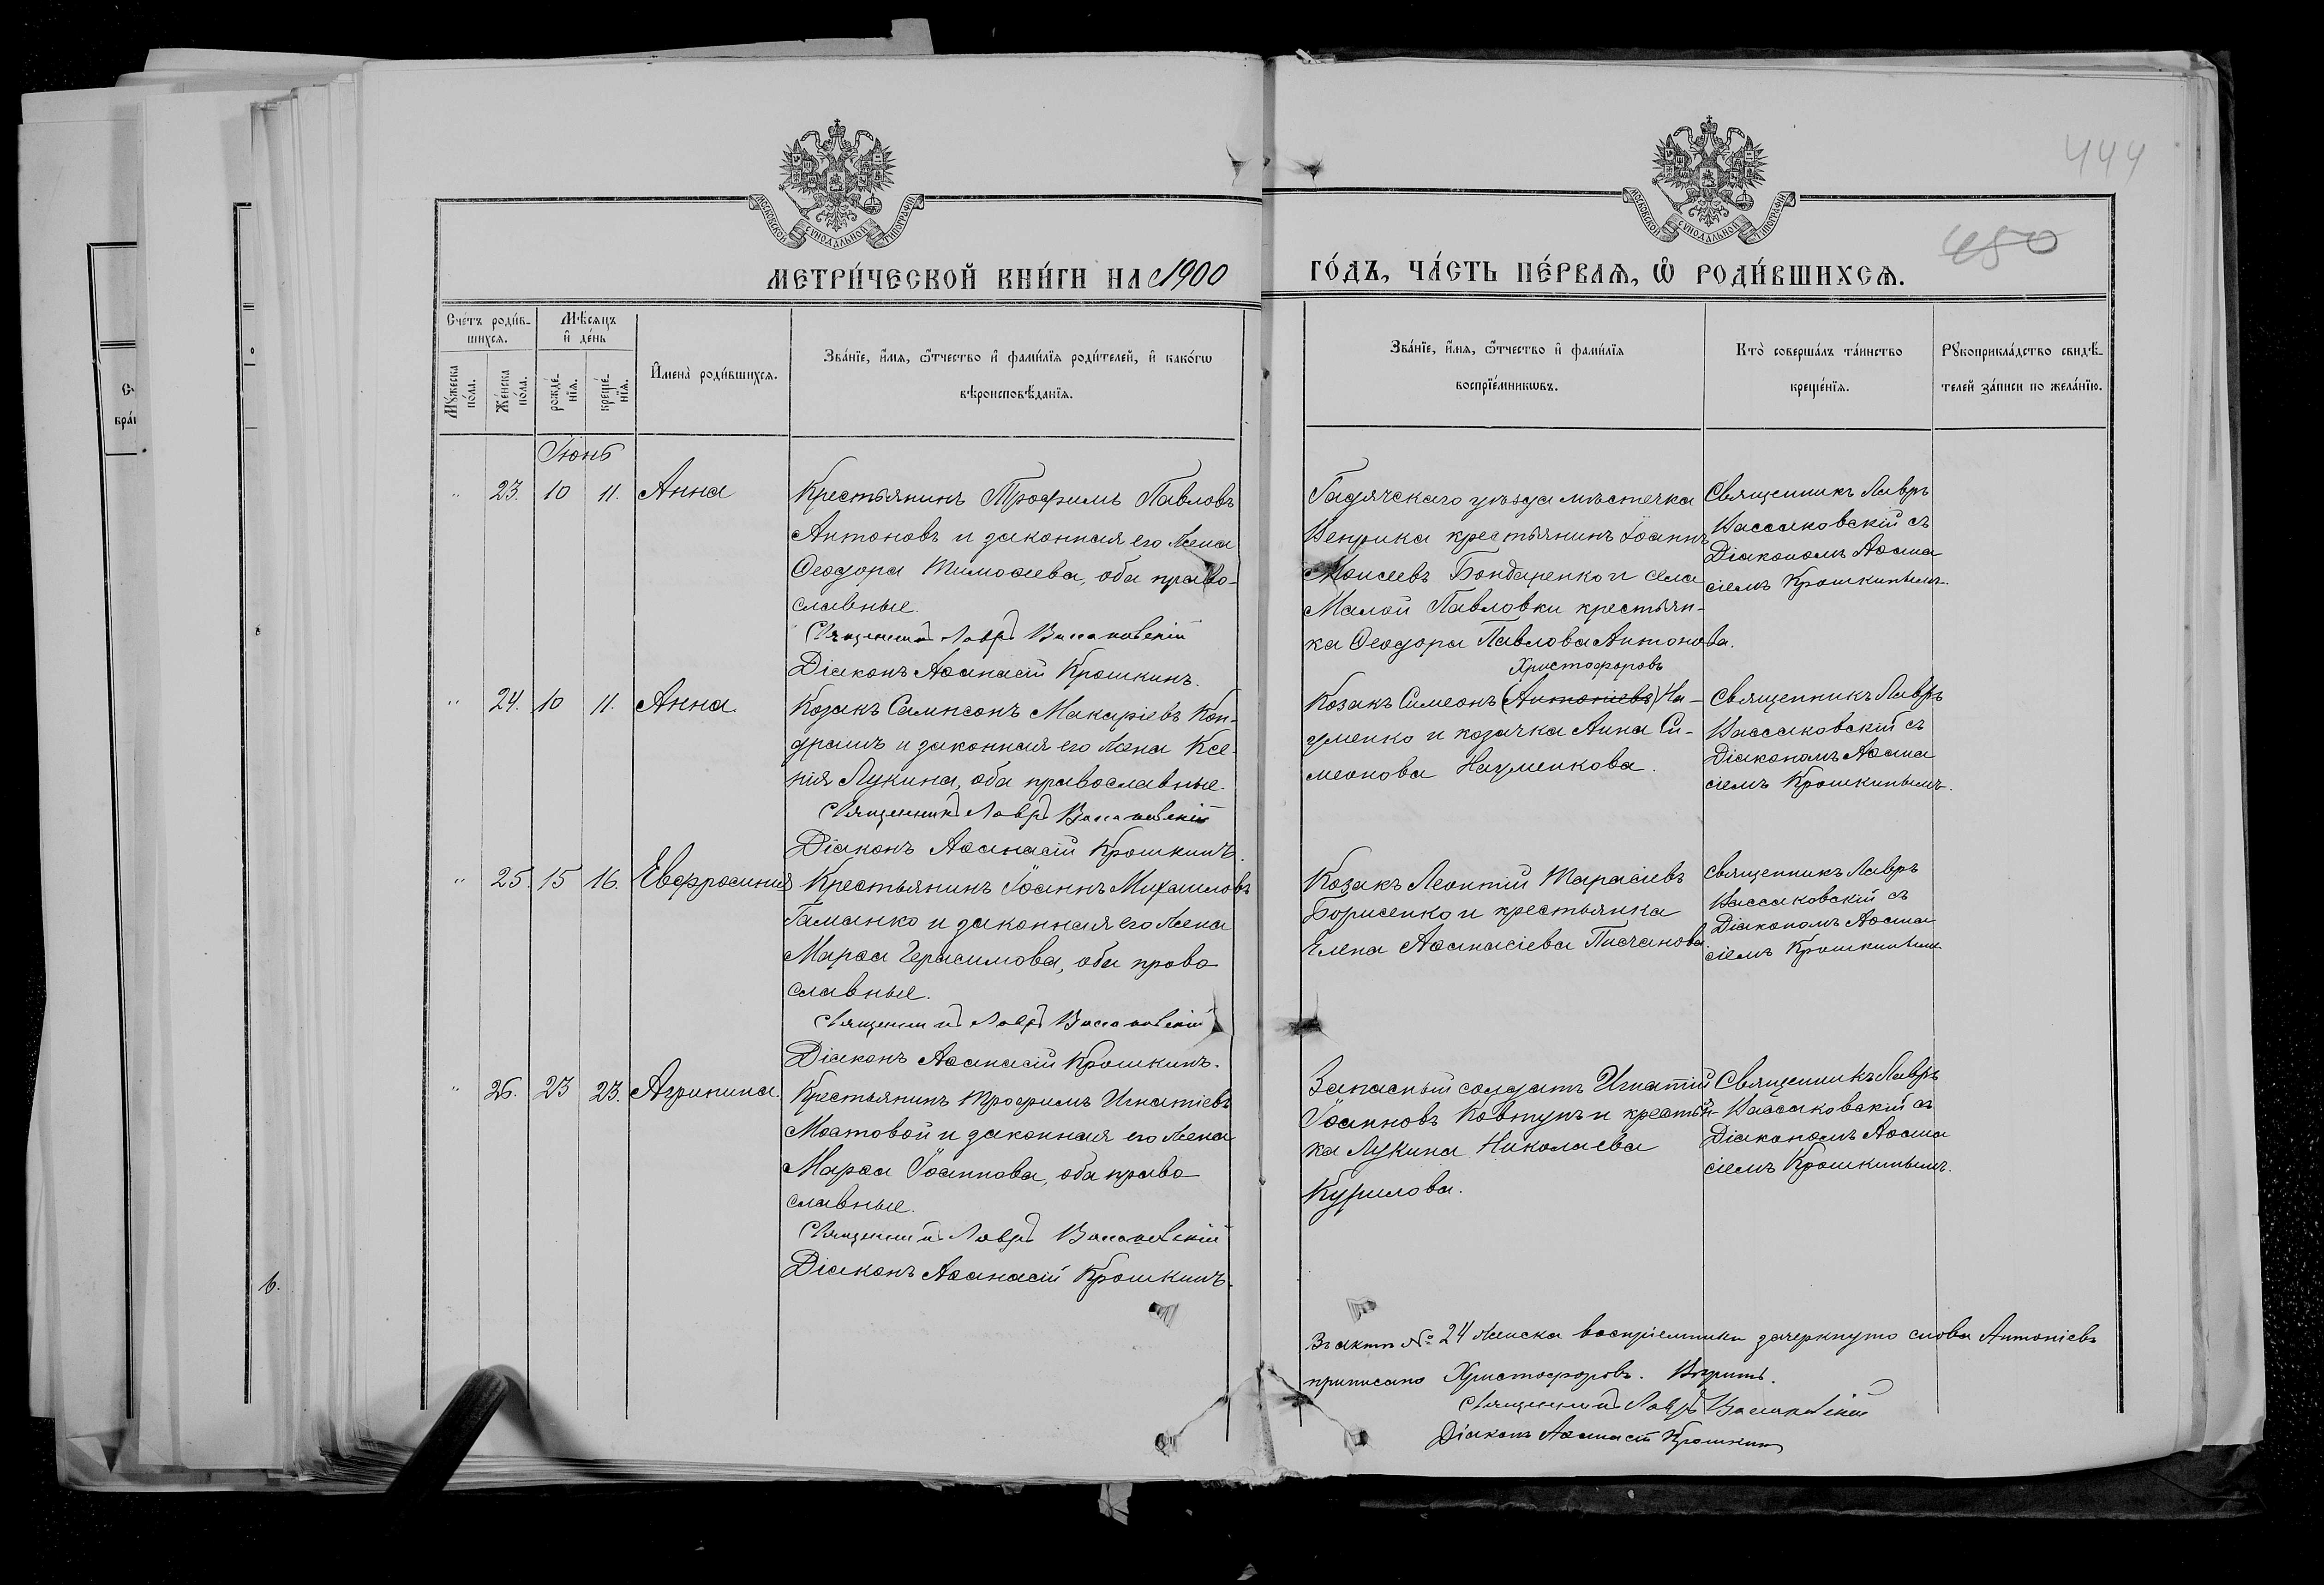 444
450
МОСКОВСКОЙ СѴНОДАЛЬНОЙ ТИПОГРАФІИ
МОСКОВСКОЙ СѴНОДАЛЬНОЙ ТИПОГРАФІИ
МЕТРИ́ЧЕСКОЙ КНИ́ГИ НА 1900
ГО́ДЪ, ЧА́СТЬ ПЕ́РВАѦ, Ѽ РОДИ́ВШИХСѦ.
Сче́тъ роди́в-
шихсѧ.
Мꙋ́жеска
по́ла.
Же́нска
по́ла.
Мѣ́сѧцъ
и҆ де́нь
рожде́-
нїѧ.
креще́-
нїѧ.
И҆мена̀ роди́вшихсѧ.
Зва́нїе, и҆́мѧ, ѻ҆́тчество и҆ фами́лїѧ роди́телей, и҆ како́гѡ
вѣроисповѣ́данїѧ.
Зва́нїе, и҆́мѧ, ѻ҆́тчество и҆ фами́лїѧ
воспрїе́мникѡвъ.
Кто̀ соверша́лъ та́инство
креще́нїѧ.
Рꙋкоприкла́дство свидѣ́-
телей за́писи по жела́нїю.
Іюнь
" 23. 10 11. Анна
Крестьянинъ Трофимъ Павловъ
Антоновъ и законная его жена
Ѳеодора Тимоѳеева, оба право-
славные.
Священникъ Лавръ Вассаковскій
Діаконъ Аѳанасій Крошкинъ.
Гадячскаго уѣзда мѣстечка
Венрика крестьянинъ Іоаннъ
Моисеевъ Бондаренко и села
Малой Павловки крестьян-
ка Ѳеодора Павлова Антонова.
Священникъ Лавръ
Вассаковскій съ
Діакономъ Аѳана
сіемъ Крошкинымъ.
" 24. 10 11. Анна.
Козакъ Сампсонъ Макаріевъ Кон-
драшъ и законная его жена Ксе-
нія Лукина, оба православные.
Священникъ Лавръ Вассаковскій
Діаконъ Аѳанасій Крошкинъ.
Христофоровъ
Козакъ Симеонъ (Антоніевъ) На-
уменко и козачка Анна Си-
меонова Науменкова.
Священникъ Лавръ
Вассаковскій съ
Діакономъ Аѳана
сіемъ Крошкинымъ.
" 25. 15 16. Евфросинія
Крестьянинъ Іоаннъ Михаиловъ
Гаманко и законная его жена
Марѳа Герасимова, оба право
славные.
Священникъ Лавръ Вассаковскій
Діаконъ Аѳанасій Крошкинъ.
Козакъ Леонтій Тарасіевъ
Борисенко и крестьянка
Елена Аѳанасіева Писчанова.
Священникъ Лавръ
Вассаковскій съ
Діакономъ Аѳана
сіемъ Крошкинымъ
" 26. 23 23. Агрипина.
Крестьянинъ Трофимъ Игнатіевъ
Мостовой и законная его жена
Марѳа Іоаннова, оба право
славные.
Священникъ Лавръ Вассаковскій
Діаконъ Аѳанасій Крошкинъ.
Запасный солдатъ Игнатій
Іоанновъ Ковтунъ и крестьян-
ка Лукина Николаева
Курилова.
Священникъ Лавръ
Вассаковскій съ
Діакономъ Аѳана
сіемъ Крошкинымъ.
Въ актѣ № 24 женска воспріемники зачеркнуто слова Антоніевъ
приписано Христофоровъ. Вѣрить.
Священникъ Лавръ Вассаковскій
Діаконъ Аѳанасій Крошкинъ